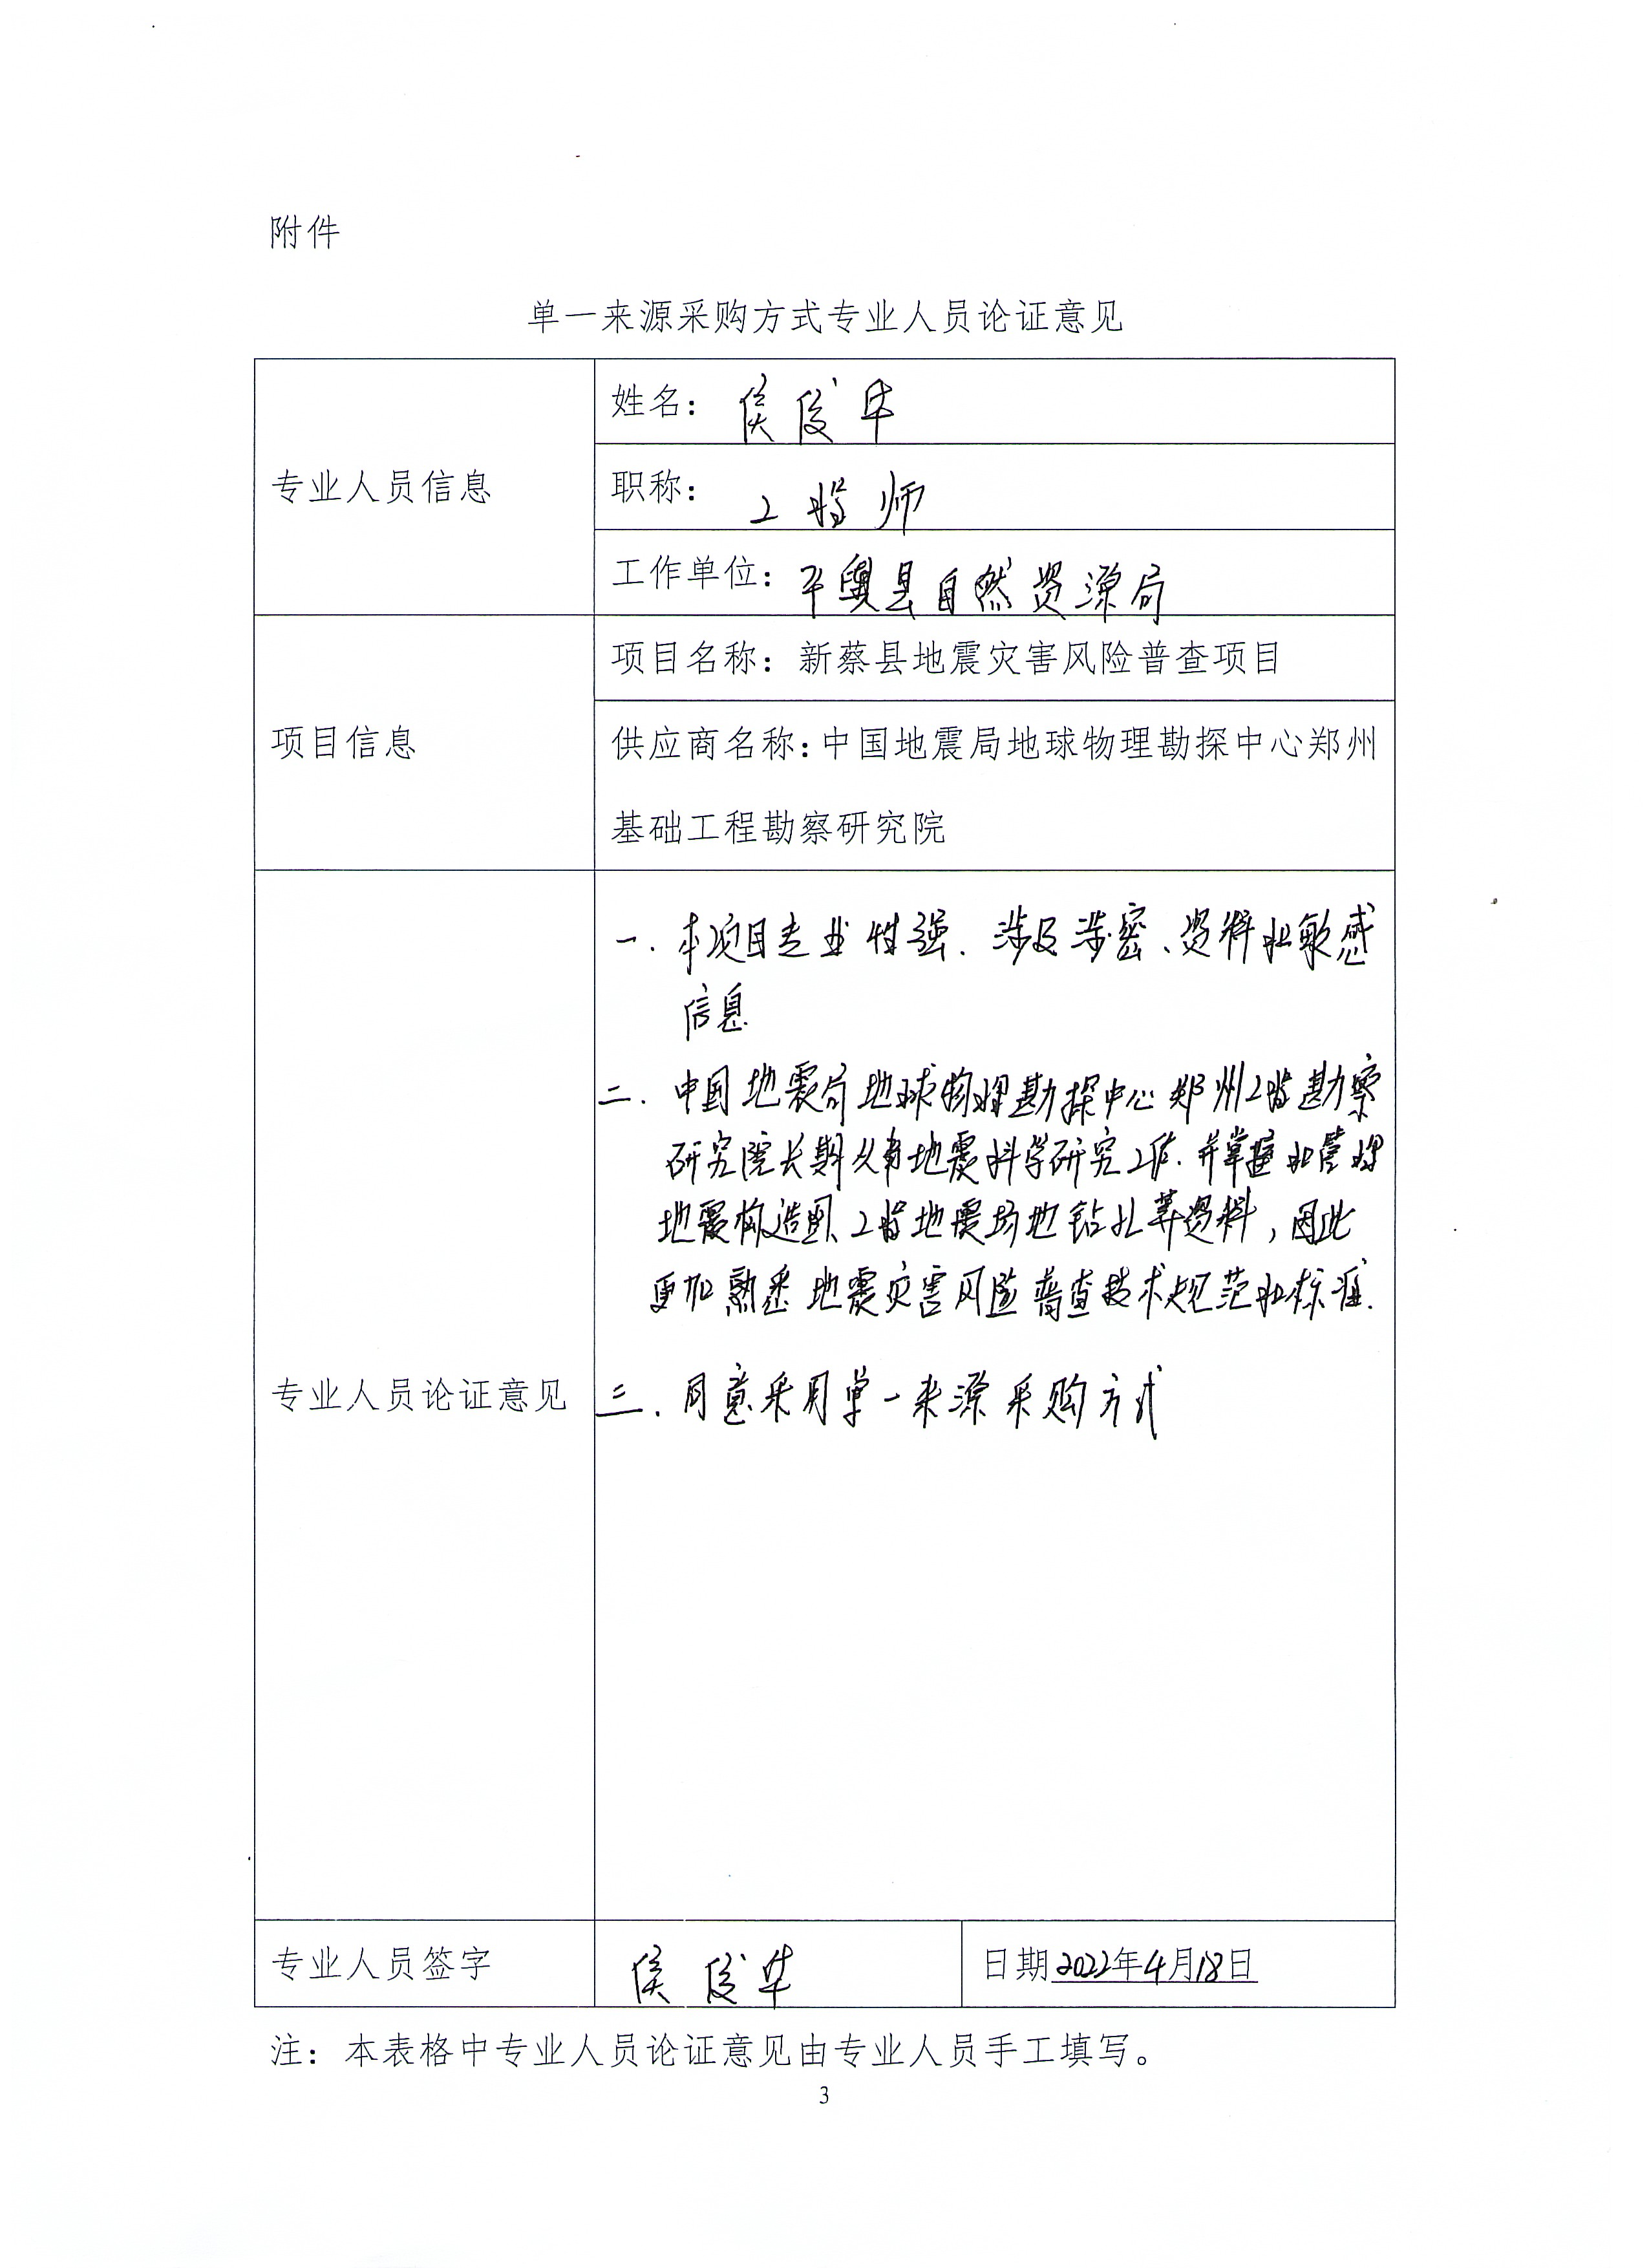 附件
单一来源采购方式专业人员论证意见
专业人员信息
姓名：侯俊华
职称：工程师
工作单位：平舆县自然资源局
项目信息
项目名称：新蔡县地震灾害风险普查项目
供应商名称：中国地震局地球物理勘探中心郑州
基础工程勘察研究院
专业人员论证意见
一．本项目专业性强．涉及涉密、资料和敏感
信息
二．中国地震局地球物理勘探中心郑州工程勘察
研究院长期从事地震科学研究工作．并掌握和管理
地震构造图、工程地震场地钻孔等资料，因此
更加熟悉地震灾害风险普查技术规范和标准．
三．同意采用单一来源采购方式
专业人员签字
侯俊华
日期2022年4月18日
注：本表格中专业人员论证意见由专业人员手工填写。
3